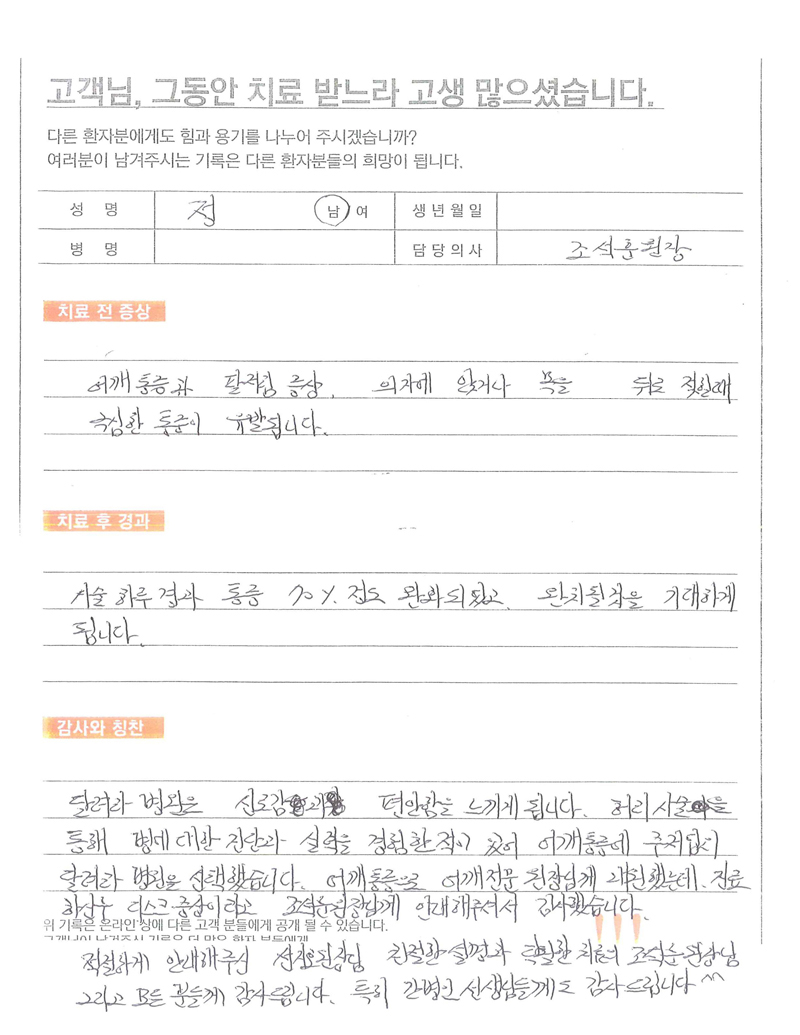 고객님, 그동안 치료 받느라 고생 많으셨습니다.
다른 환자분에게도 힘과 용기를 나누어 주시겠습니까?
여러분이 남겨주시는 기록은 다른 환자분들의 희망이 됩니다.
성 명 정 남 여 생 년 월 일
병 명 담 당 의 사 조석훈원장
치료 전 증상
어깨통증과 팔저림 증상, 의자에 앉거나 목을 뒤로 젖힐때
극심한 통증이 유발됩니다.
치료 후 경과
시술 하루 경과 통증 70% 정도 완화되었고, 완치될것을 기대하게
됩니다.
감사와 칭찬
달려라 병원은 신뢰감 편안함을 느끼게 됩니다. 허리시술을
통해 병에대한 진단과 실력을 경험한적이 있어 어깨통증에 주저없이
달려라 병원을 선택했습니다. 어깨통증으로 어깨전문 원장님께 내원했는데, 진료
하신후 디스크증상이라고 조석훈원장님께 안내해주셔서 감사했습니다.
위 기록은 온라인상에 다른 고객 분들에게 공개 될 수 있습니다.
고객님이 남겨주신 기록은 더 많은 환자 분들에게
적절하게 안내해주신 원장님 친절한 설명과 특별한 치료의 조석훈원장님
그리고 모든 분들께 감사드립니다. 특히 간병인 선생님들께도 감사드립니다^^